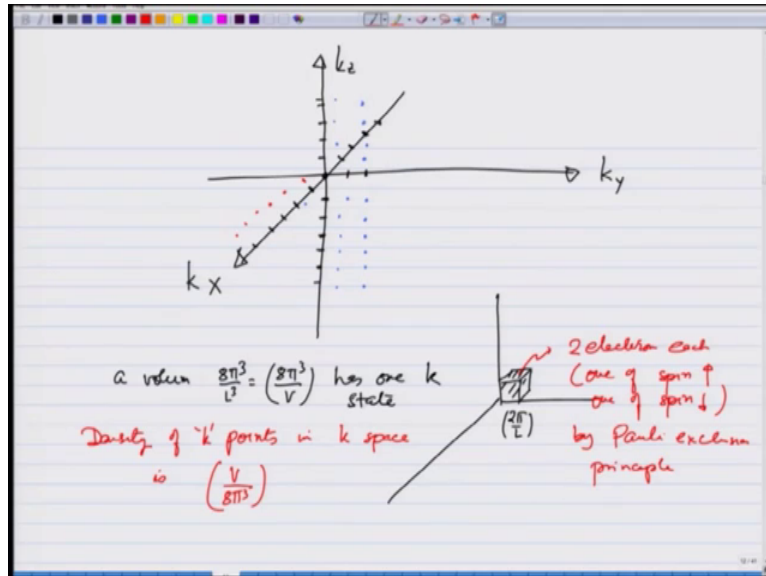 kz
ky
kx
a volum 8π³/L³ = (8π³/V) has one k
state
Density of 'k' points in k space
is (V/8π³)
2 electron each
(one of spin ↑
one of spin ↓)
by Pauli exclusion
principle
(2π/L)